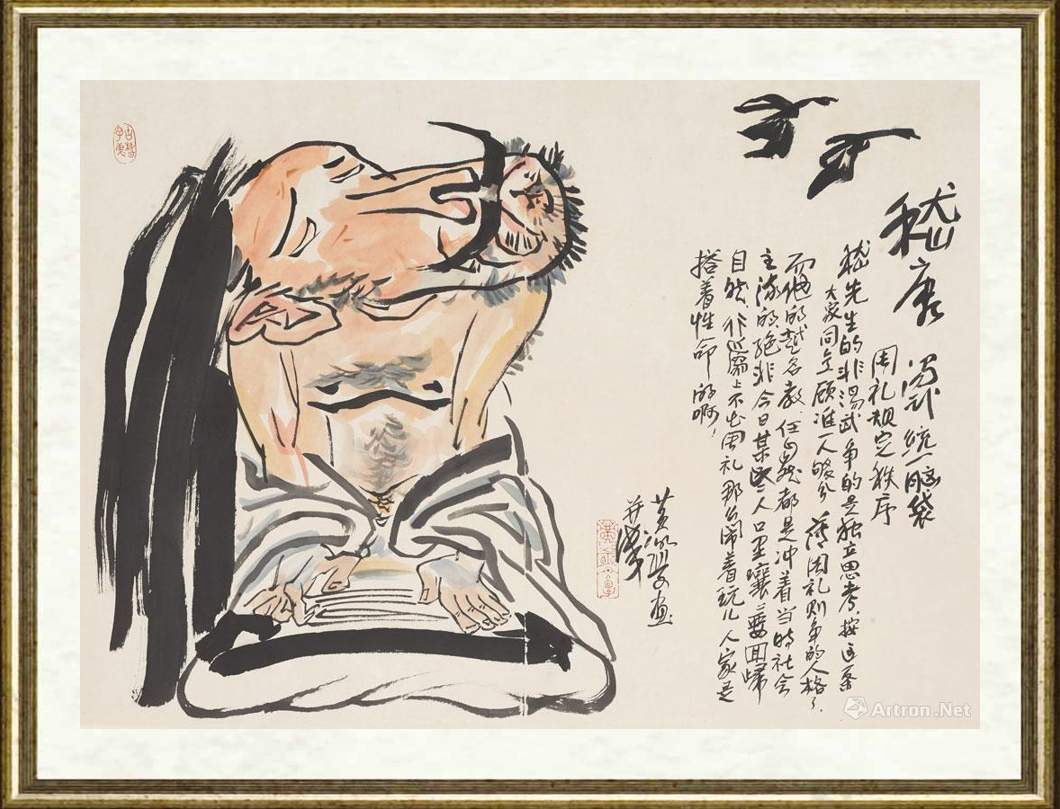 嵇康
汤武统一脑袋
周礼规定秩序
嵇先生的非汤武争的是独立思考，按这条
大家同意顾准一人够分 薄周礼则争的人格了，
而他的越名教、任自然都是冲着当时社会
主流的，绝非今日某些人口里嚷嚷要回归
自然、行为上不出周礼那么闹着玩儿，人家是
搭着性命的啊！
黄永厚画
并识
Artron.Net